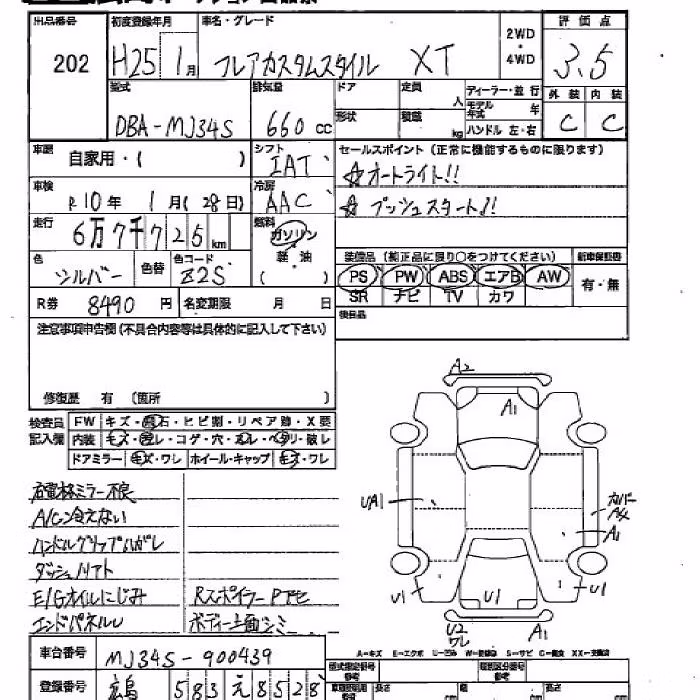 出品番号 初度登録年月 車名・グレード 2WD・4WD 評価点
202 H25 1月 フレアカスタムスタイル XT 3.5
型式 排気量 ドア 定員 人 ディーラー・並行 外装 内装
DBA-MJ34S 660cc 形状 積載 kg モデル年式 年 ハンドル 左・右 C C
車歴 自家用・( ) シフト IAT セールスポイント(正常に機能するものに限ります)
車検 R10年 1月(28日) 冷房 AAC ☆オートライト!!
☆プッシュスタート!!
走行 6万7千725km 燃料 ガソリン 軽油 ( )
色 シルバー 色替 色コード Z2S 装備品(純正品に限り○をつけてください) 新車保証書
PS PW ABS エアB AW 有・無
SR ナビ TV カワ
R券 8490円 名変期限 月 日 後日品
注意事項申告欄(不具合内容等は具体的に記入して下さい)
修復歴 有 (箇所 )
検査員記入欄 FW キズ・飛石・ヒビ割・リペア跡・X要
内装 モズ・スレ・コゲ・穴・ヌレ・ヘタリ・破レ
ドアミラー キズ・ワレ ホイール・キャップ キズ・ワレ
A2
A1
UA1
カバーAX
A1
U1
U1
U1
U2 ワレ
A1
右電格ミラー不良
A/C冷えない
ハンドルグリップハガレ
ダッシュリフト
E/Gオイルにじみ Rスポイラー Pでセ
エンドパネルU ボディー上面シミ
A=キズ E=エクボ U=凹み W=補修跡 S=サビ C=腐食 XX=交換済
車台番号 MJ34S-900439
型式指定番号 類別区分番号
登録番号 広島 583 え 8528
長さ cm 幅 cm 高さ cm